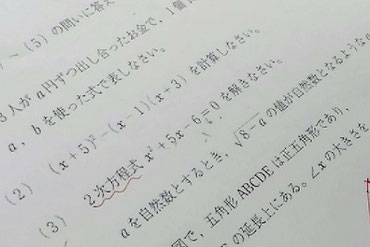 ～(5)の問いに答え
3人がa円ずつ出し合ったお金で，1個
a，bを使った式で表しなさい。
(2) (x+5)²−(x−1)(x+3)を計算しなさい。
(3) 2次方程式 x²+5x−6=0を解きなさい。
aを自然数とするとき，√8−a の値が自然数となるような
図で，五角形ABCDEは正五角形であり，
の延長上にある。∠xの大きさを